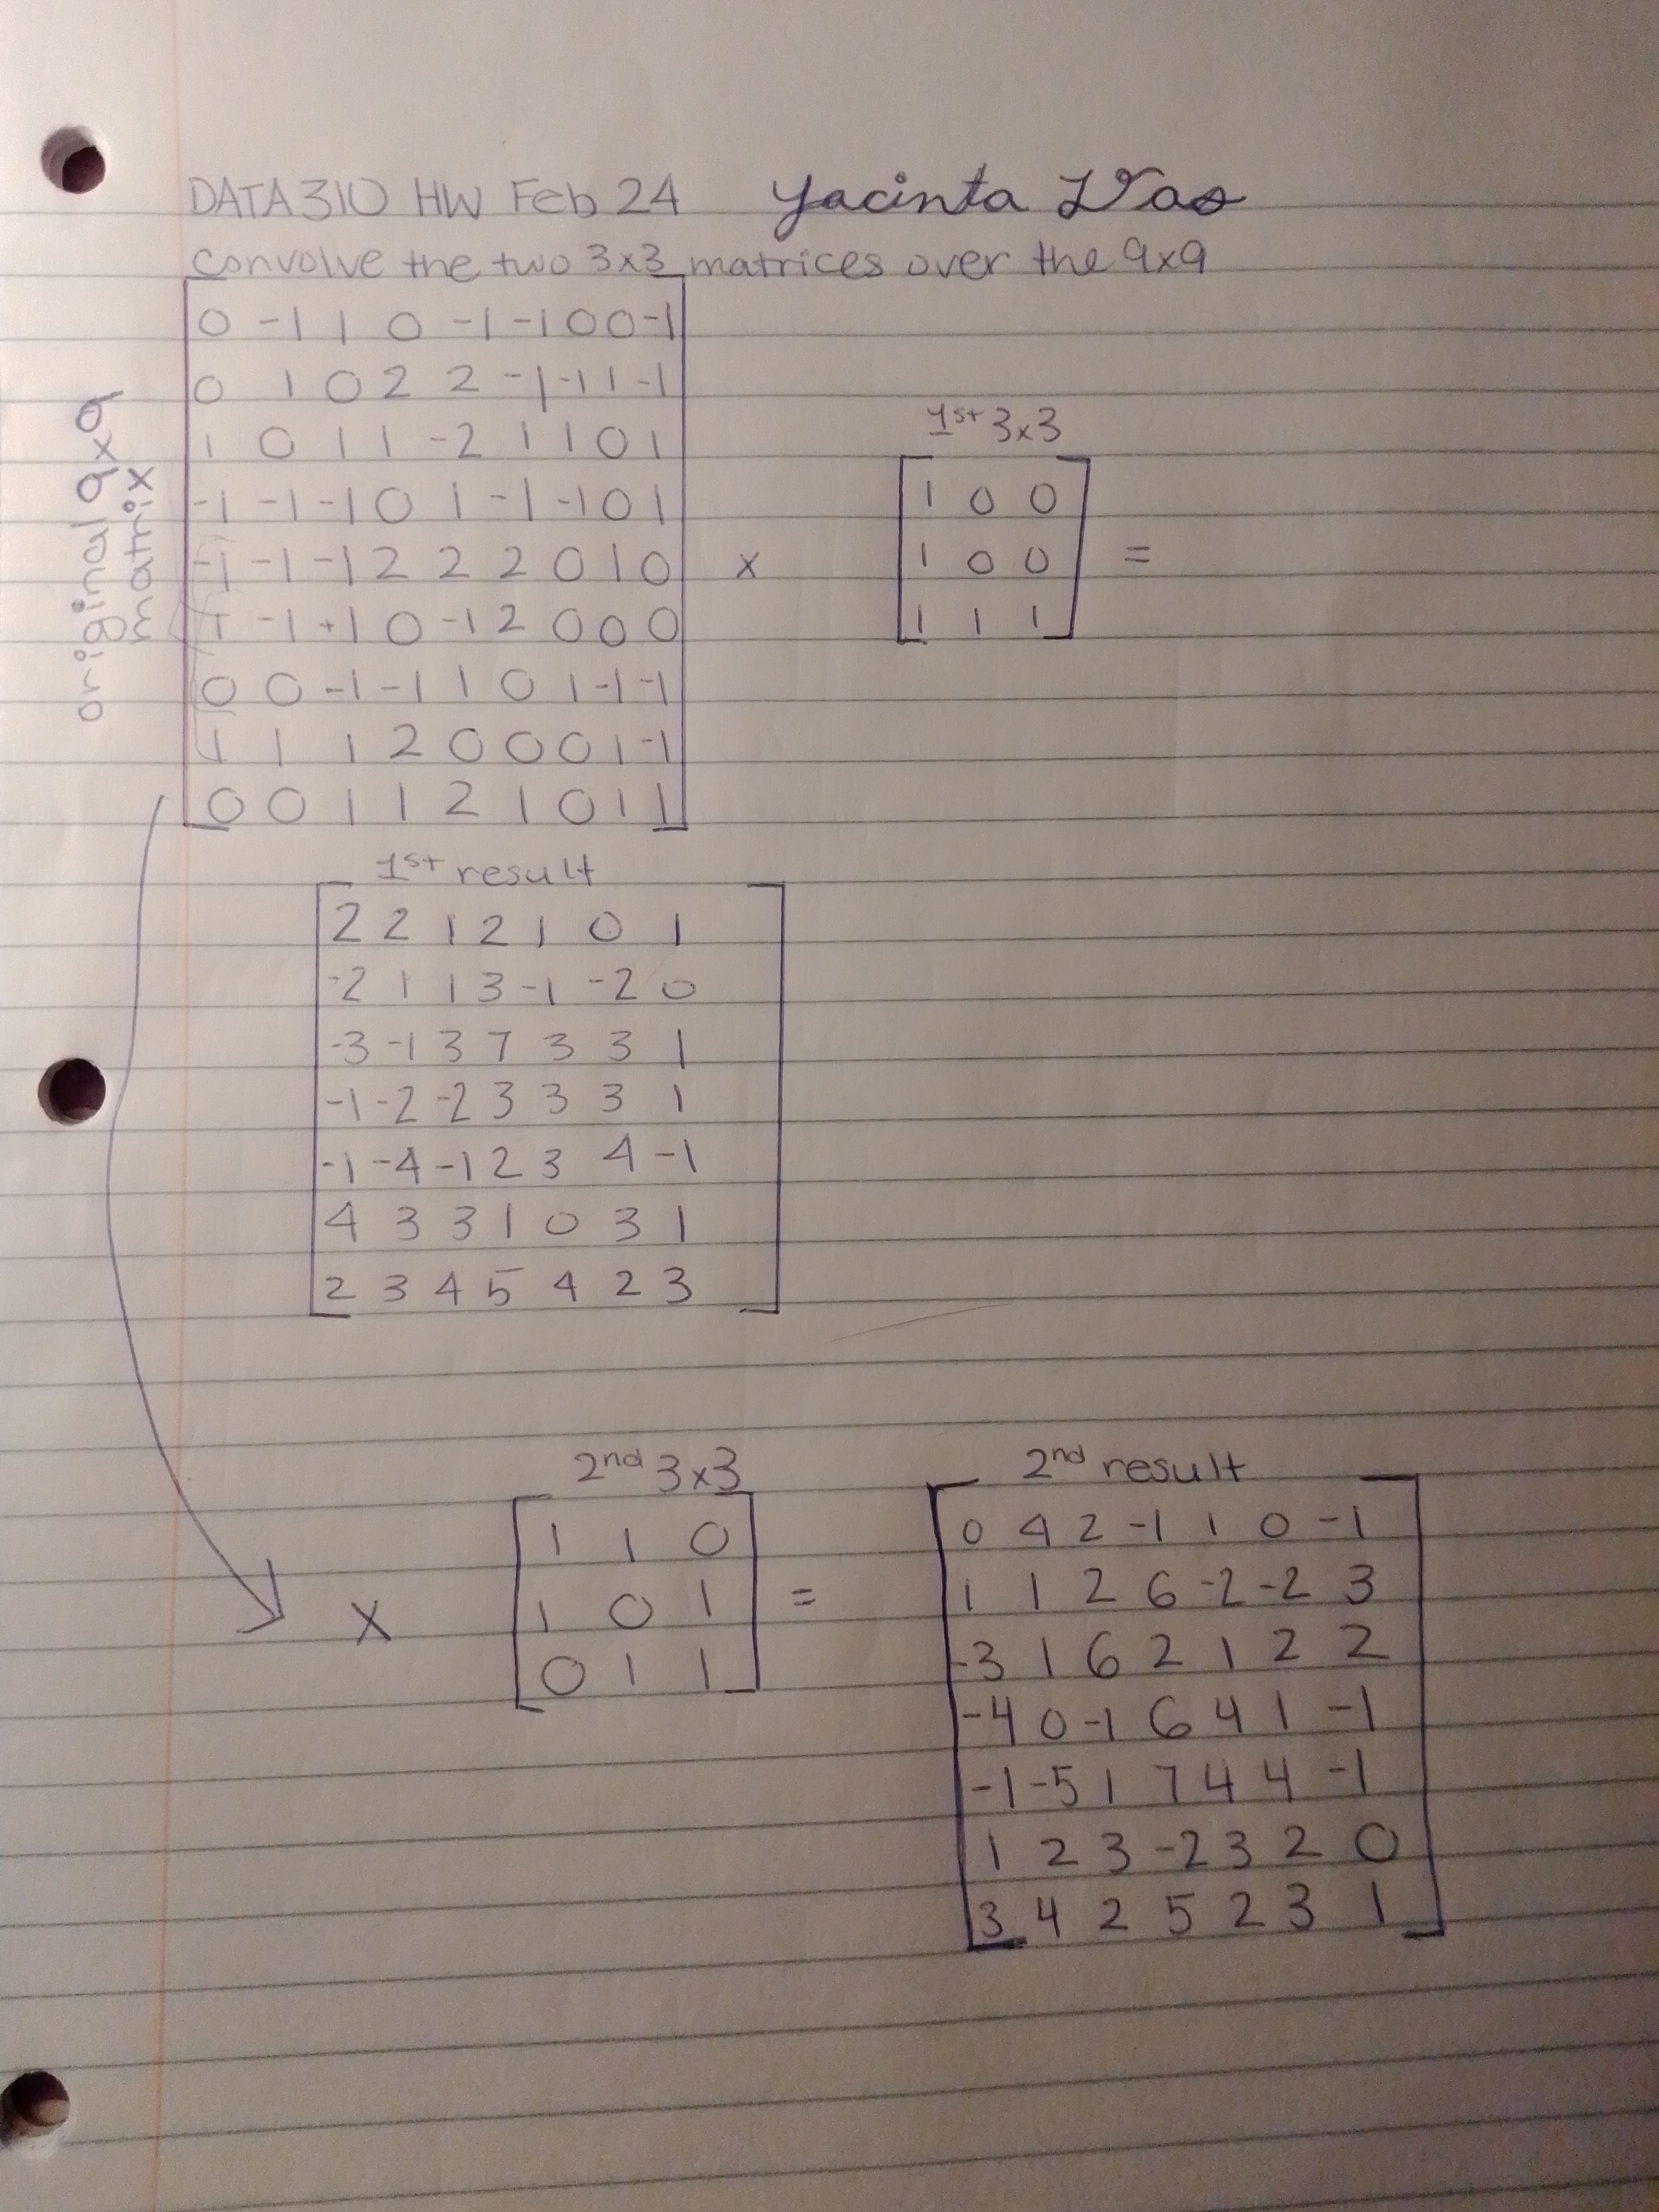 DATA 310 HW Feb 24 Yacinta
Convolve the two 3x3 matrices over the 9x9
original 9x9
matrix
0 -1 1 0 -1 -1 0 0 -1
0 1 0 2 2 -1 -1 1 -1
1 0 1 1 -2 1 1 0 1
-1 -1 -1 0 1 -1 -1 0 1
-1 -1 -1 2 2 2 0 1 0
-1 +1 0 -1 2 0 0 0
0 0 -1 -1 1 0 1 -1 -1
1 1 1 2 0 0 0 1 -1
0 0 1 1 2 1 0 1 1
x
1st 3x3
1 0 0
1 0 0
1 1 1
=
1st result
2 2 1 2 1 0 1
-2 1 1 3 -1 -2 0
-3 -1 3 7 3 3 1
-1 -2 -2 3 3 3 1
-1 -4 -1 2 3 4 -1
4 3 3 1 0 3 1
2 3 4 5 4 2 3
x
2nd 3x3
1 1 0
1 0 1
0 1 1
=
2nd result
0 4 2 -1 1 0 -1
1 1 2 6 -2 -2 3
-3 1 6 2 1 2 2
-4 0 -1 6 4 1 -1
-1 -5 1 7 4 4 -1
1 2 3 -2 3 2 0
3 4 2 5 2 3 1